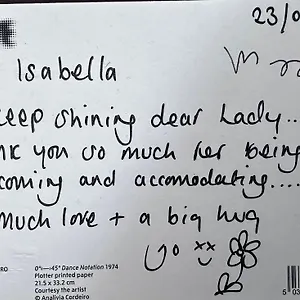 23/0
Isabella
eep shining dear Lady...
nk you so much for being
coming and accomodating....
much love + a big hug
xx
RO
0°⟷45° Dance Notation 1974
Plotter printed paper
21.5 x 33.2 cm
Courtesy the artist
© Analivia Cordeiro
5 03